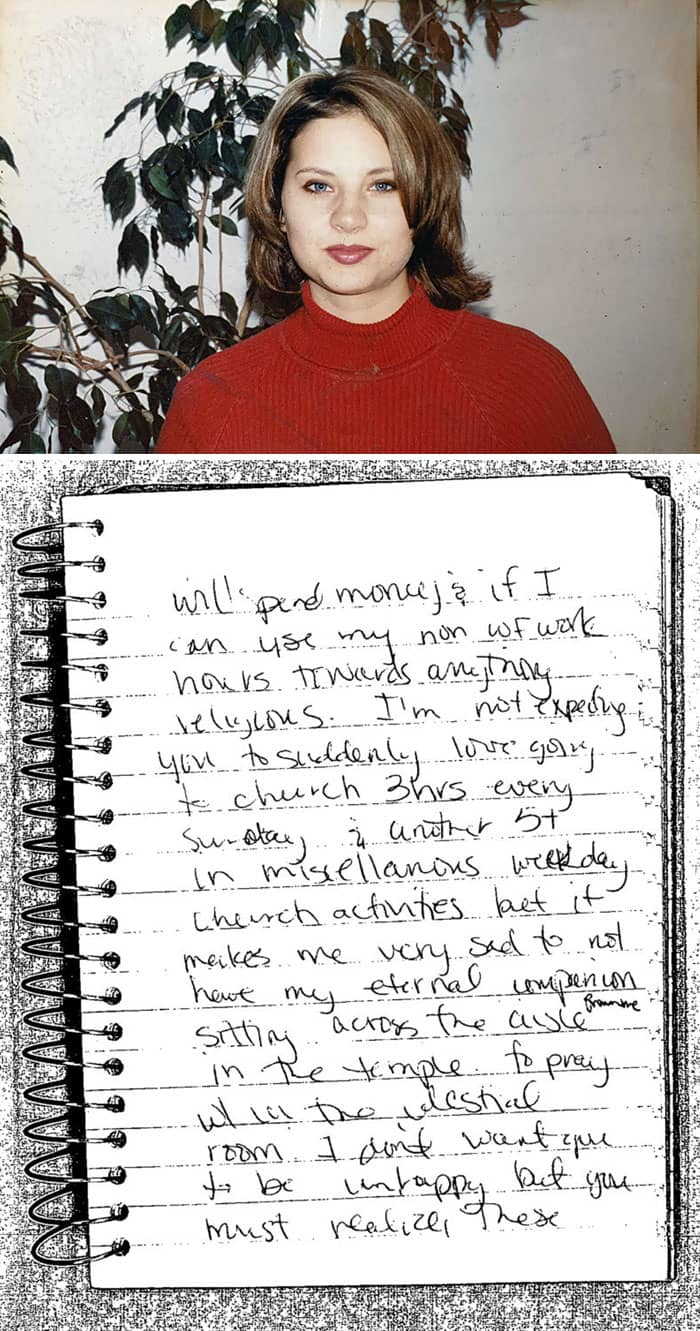 will spend money & if I
can use my non wf work
hours towards anything
religious. I'm not expecting
you to suddenly love going
to church 3hrs every
Sunday & another 5+
in miscellanous weekday
church activities but it
makes me very sad to not
have my eternal companion
sitting across the aisle from me
in the temple to pray
w/ in the celestial
room. I don't want you
to be unhappy but you
must realize, these